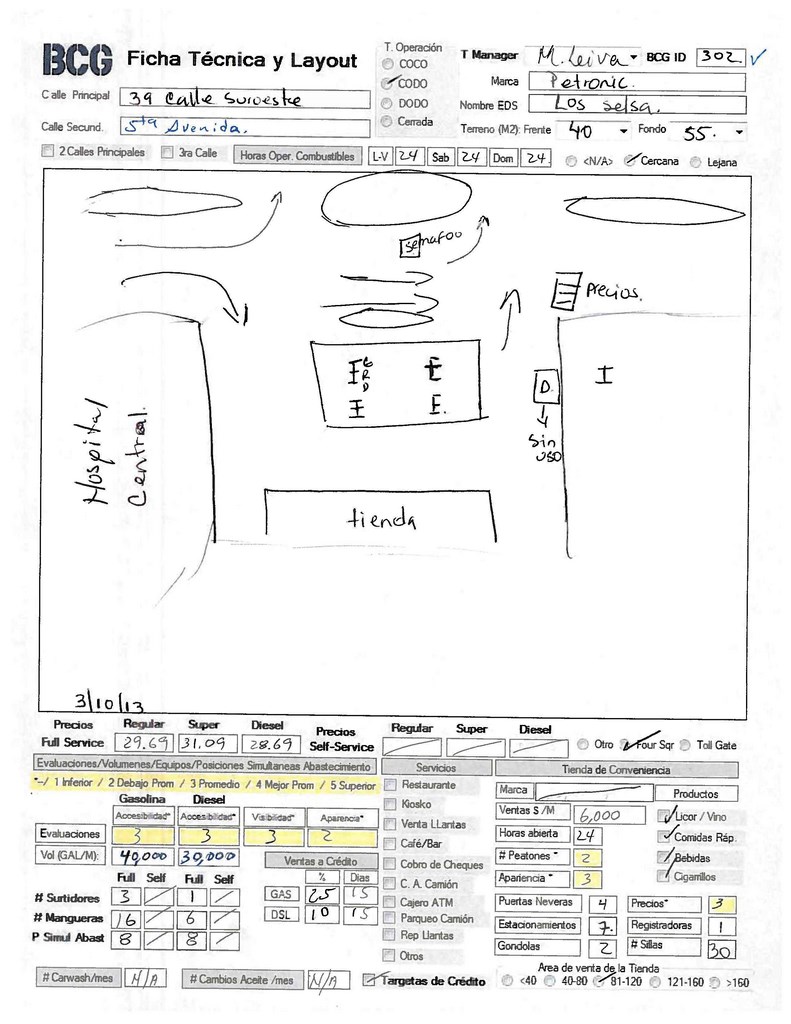 BCG Ficha Técnica y Layout
T. Operación
COCO
CODO
DODO
Cerrada
T Manager M. Leiva BCG ID 302
Marca Petronic.
Nombre EDS Los selsa.
Terreno (M2): Frente 40 Fondo 55.
Calle Principal 39 calle suroeste
Calle Secund. 5ta Avenida.
2 Calles Principales 3ra Calle Horas Oper. Combustibles L-V 24 Sab 24 Dom 24 <N/A> Cercana Lejana
semafoo
Precios.
Hospital Central.
G
R
D
D.
Sin
uso
tienda
3/10/13
Precios Regular Super Diesel
Full Service 29.69 31.09 28.69
Precios Regular Super Diesel
Self-Service
Otro Four Sqr Toll Gate
Evaluaciones/Volumenes/Equipos/Posiciones Simultaneas Abastecimiento
*-/ 1 Inferior / 2 Debajo Prom / 3 Promedio / 4 Mejor Prom / 5 Superior
Gasolina Diesel
Accesibilidad* Accesibilidad* Visibilidad* Aparencia*
Evaluaciones 3 3 3 2
Vol (GAL/M): 40,000 30,000
Full Self Full Self
# Surtidores 3 1
# Mangueras 16 6
P Simul Abast 8 8
Ventas a Crédito
% Dias
GAS 25 15
DSL 10 15
# Carwash/mes N/A # Cambios Aceite /mes N/A
Servicios
Restaurante
Kiosko
Venta LLantas
Café/Bar
Cobro de Cheques
C. A. Camión
Cajero ATM
Parqueo Camión
Rep Llantas
Otros
Targetas de Crédito
Tienda de Conveniencia
Marca
Ventas $ /M 6,000
Horas abierta 24
# Peatones * 2
Apariencia * 3
Productos
Licor / Vino
Comidas Ráp.
Bebidas
Cigarrillos
Puertas Neveras 4 Precios* 3
Estacionamientos 7. Registradoras 1
Gondolas 2 # Sillas 30
Area de venta de la Tienda
<40 40-80 81-120 121-160 >160